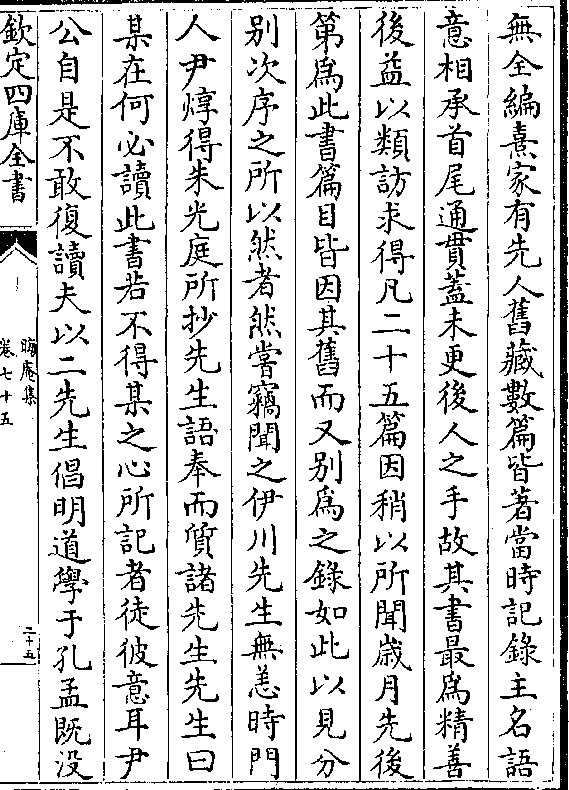 無全編熹家有先人舊藏數篇皆著當時記錄主名語
意相承首尾通貫蓋未更後人之手故其書最爲精善
後益以類訪求得凡二十五篇因稍以所聞歲月先後
第爲此書篇目皆因其舊而又別爲之錄如此以見分
別次序之所以然者然嘗竊聞之伊川先生無恙時門
人尹焞得朱光庭所抄先生語奉而質諸先生先生曰
某在何必讀此書若不得某之心所記者徒彼意耳尹
公自是不敢復讀夫以二先生倡明道學于孔孟既没
欽定四庫全書
晦庵集
卷七十五
二十五